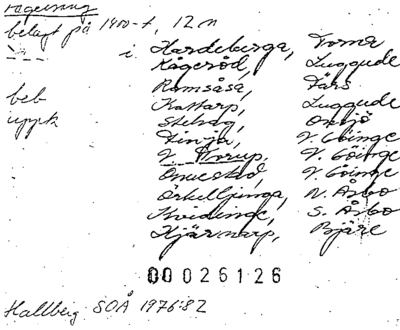 belagt på 1400-t, 12 n
i Hardeberga, Torna
Kågeröd, Luggude
Ramsåsa, Färs
beb Kattarp, Luggude
uppk Stehag, Onsjö
Finja, V. Göinge
V. Torup, V. Göinge
V. Göinge
Örkelljunga, N. Åsbo
Kvidinge, S. Åsbo
Hjärnarp, Bjäre
00026126
Hallberg SOÅ 1976:82